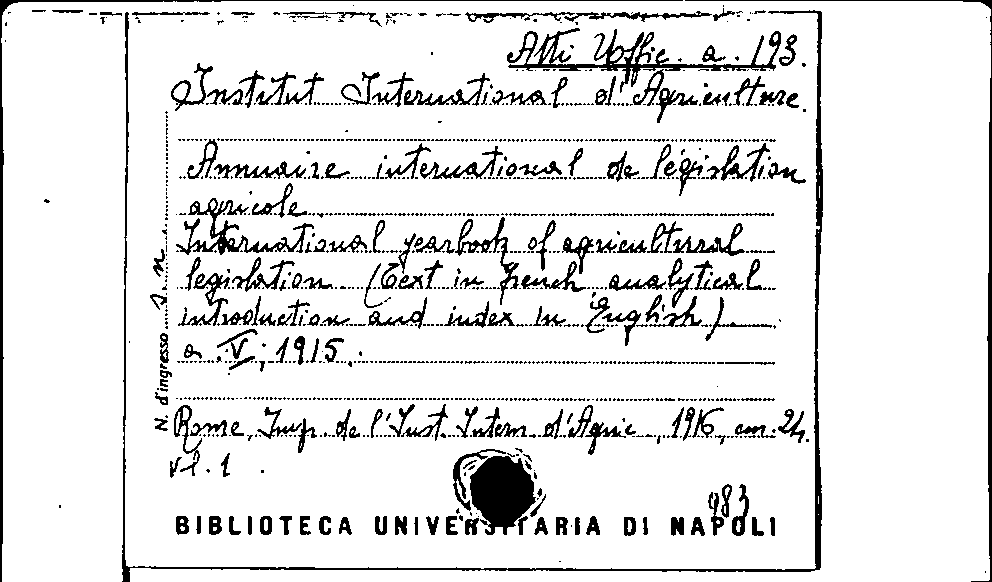 Atti Uffic. a. 193.
Institut International d'Agriculture.
Annuaire international de législation
agricole.
International yearbook of agricultural
legislation. (Text in french, analytical
introduction and index in English).
a. V, 1915.
N. d'ingresso s. n.
Rome, Imp. de l'Inst. Intern. d'Agric., 1916, cm. 24.
vl. 1.
983
BIBLIOTECA UNIVERSITARIA DI NAPOLI